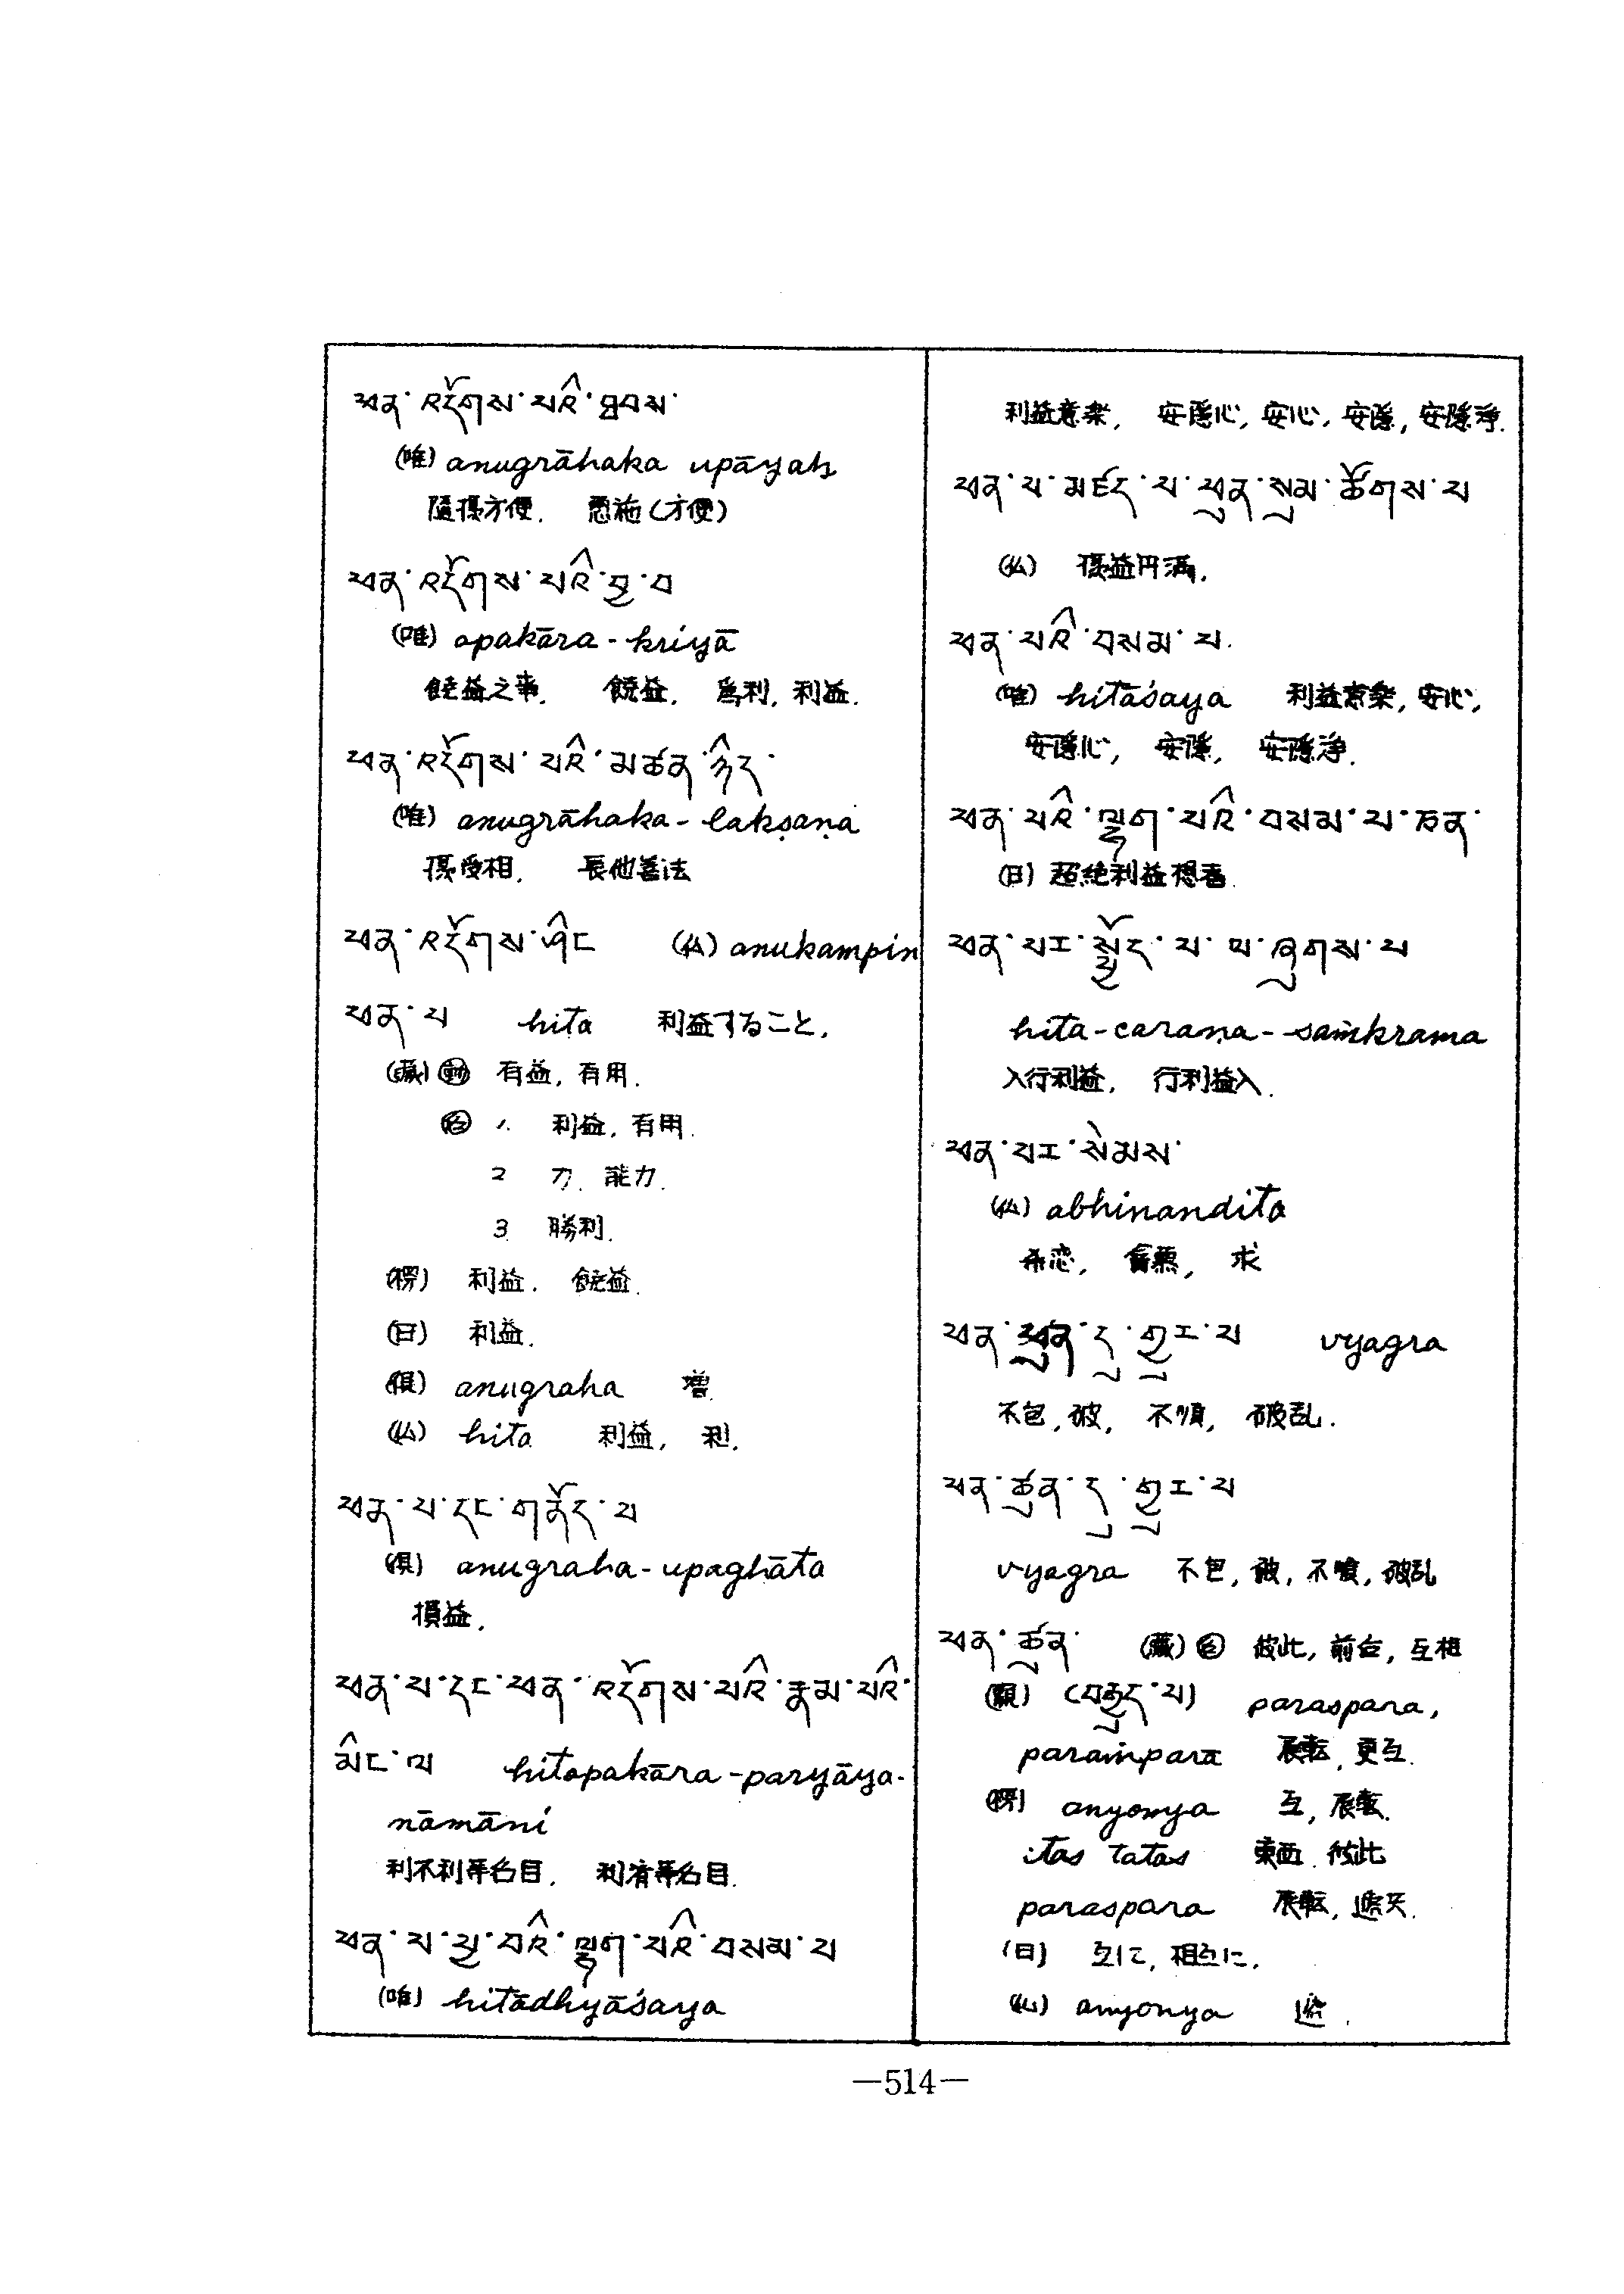 ཕན་འདོགས་པའི་ཐབས་
(唯) anugrāhaka upāyaḥ
隨摂方便. 恩施(方便)
ཕན་འདོགས་པའི་བྱ་བ
(唯) apakāra-kriyā
饒益之事. 饒益, 為利, 利益.
ཕན་འདོགས་པའི་མཚན་ཉིད་
(唯) anugrāhaka-lakṣaṇa
摂受相. 長他善法
ཕན་འདོགས་ཤིང (仏) anukampin
ཕན་པ hita 利益すること.
(蔵) 動 有益, 有用.
名 1. 利益, 有用.
2 力. 能力.
3. 勝利.
(楞) 利益. 饒益.
(日) 利益.
(倶) anugraha 増.
(仏) hita 利益, 利.
ཕན་པ་དང་གནོད་པ
(倶) anugraha-upaghāta
損益.
ཕན་པ་དང་ཕན་འདོགས་པའི་རྣམ་པའི་
མིང་ལ hitopakāra-paryāya-
nāmāni
利不利等名目. 利有等名目.
ཕན་པ་བྱ་བའི་ལྷག་པའི་བསམ་པ
(唯) hitādhyāśaya
利益意楽, 安隱心, 安心, 安隱, 安隱浄.
ཕན་པ་མཛད་པ་ཕུན་སུམ་ཚོགས་པ
(仏) 摂益円満.
ཕན་པའི་བསམ་པ.
(唯) hitāśaya 利益意楽, 安心,
安隱心, 安隱, 安隱浄.
ཕན་པའི་ལྷག་པའི་བསམ་པ་ཅན་
(日) 超絶利益想者.
ཕན་པར་སྤྱོད་པ་ལ་ཞུགས་པ
hita-caraṇa-saṁkrama
入行利益, 行利益入.
ཕན་པར་སེམས་
(仏) abhinandita
希恋, 求
ཕན་ ད་གྱུར་པ vyagra
不包, 破, 不順, 破乱.
ཕན་ཚུན་དུ་གྱུར་པ
vyagra 不包, 破, 破乱
ཕན་ཚུན་ (蔵) 名 彼此, 前台, 互相
paraspara,
paraṁparā 展転, 更互.
(楞) anyonya 互, 展転.
itas tatas 東西. 彼此
paraspara 展転,
(日) 互に, 相互に.
(仏) anyonya
—514—